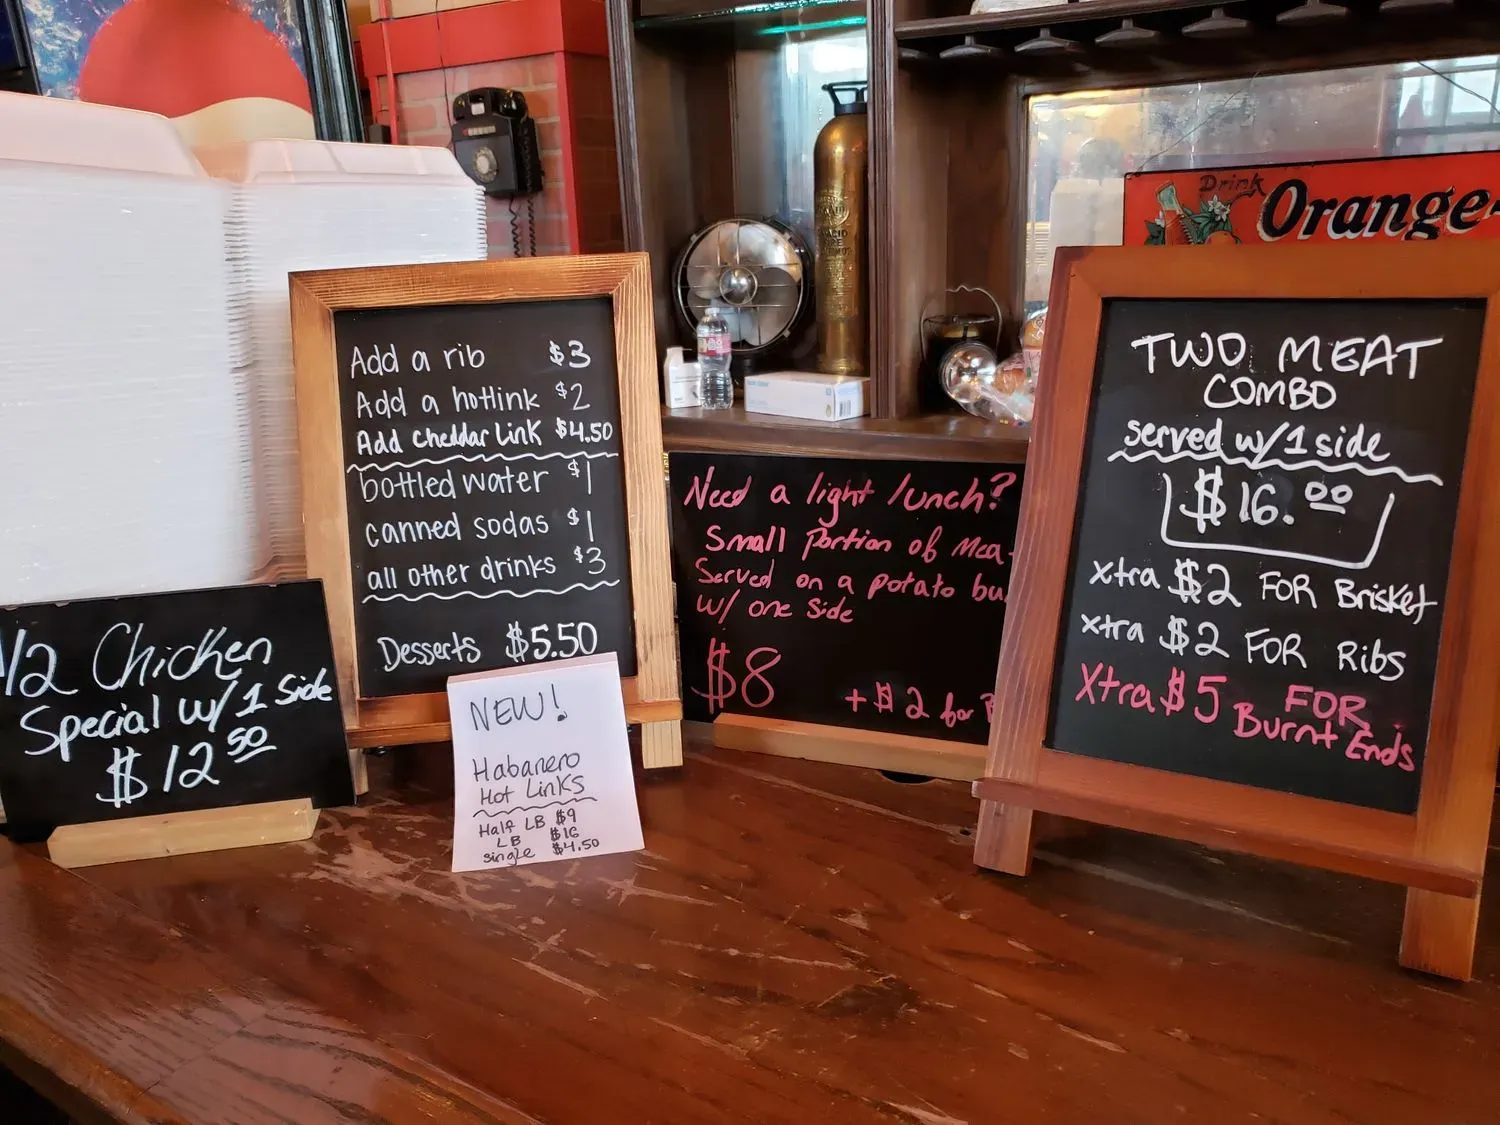 1/2 Chicken
Special w/ 1 Side
$12.50
Add a rib $3
Add a hotlink $2
Add cheddar Link $4.50
bottled water $1
canned sodas $1
all other drinks $3
Desserts $5.50
NEW!
Habanero
Hot Links
Half LB $9
LB $16
single $4.50
Need a light lunch?
Small portion of
Served on a potato
w/ one side
$8
+ $2 for
Drink
Orange-
TWO MEAT
COMBO
served w/ 1 side
$16.00
xtra $2 FOR Brisket
xtra $2 FOR Ribs
Xtra $5 FOR
Burnt Ends